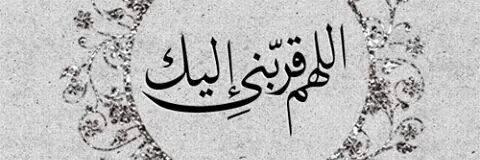 اللهم قربّني إليك